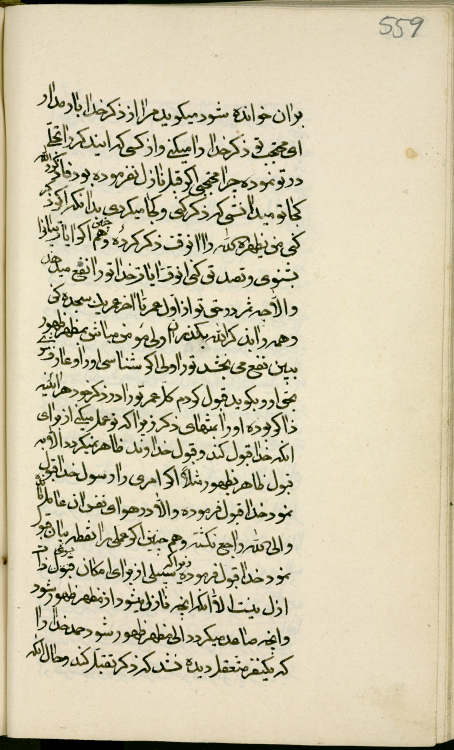 559
بر او خوانده شود میگوید مرا از ذکر خدا باز مدار
ای محتجب تو ذکر خدا را میکنی و از کسی که آیه ذکر را تجلی
در تو نموده چرا محتجبی اگر قبل نازل نفرموده بود فاذکروا الله
کجا تو میدانستی که ذکر کنی و کجا میکردی بدانکه اگر ذکر
کنی من یظهره الله را آنوقت ذکر کرده و همچنین اگر آیات او را
بشنوی و تصدیق کنی آنوقت آیات خدا تو را نفع میدهد
والا چه ثمر در حق تو از اول عمر تا آخر عمر یک سجده کنی
و همه را بذکر الله بگذرانی ولی مؤمن نباشی بمظهر ظهور
ببین نفع می بخشد تو را ولی اگر شناسی او را و عارف شوی
بحق او و بگوید قبول کردم کل عمر تو را در ذکر خود هر آینه
ذاکر بوده او را بمنتهای ذکر زیرا که تو عمل میکنی از برای
آنکه خدا قبول کند و قبول خداوند ظاهر نمیگردد الا به
قبول ظاهر بظهور مثلا اگر امری را رسول خدا قبول
نمود خدا قبول فرموده والا در هوای نفس آن عامل مانده
والی الله راجع نگشته و همچنین اگر عملی را نقطه بیان قبول
نمود خدا قبول فرموده زیرا که سبیلی از برای امکان بسوی ذات
ازل نیست الا آنکه آنچه نازل میشود از مظهر ظهور شود
و آنچه صاعد میگردد الی مظهر ظهور شود حمد خدا را
که یکنفر متعقل دیده نشد که ذکر بقبل کند و حال آنکه